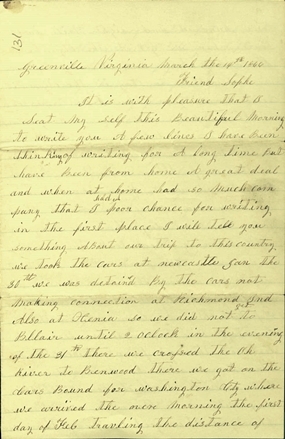 131
Greenville Virginia March the 14th 1866
Friend Sophe
It is with pleasure that I
Seat My self this Beautiful Morning
to write you A few lines I have Been
thinking of writing for A long time But
have Been from home A great deal
and when at home had so Much com
pany that I had poor chance for writing
in the first place I will tell you
something About our trip to this country
we took the cars at newcastle Jan the
30th we was detaind By the cars not
Making connection at Richmond Ind
Also at Xenia so we did not to
Bllair until 2 Oclock in the evening
of the 31th there we crossed the Oh
heiver to Benwood there we got on the
Cars Bound for washington City where
we arrived the next Morning the first
day of Feb travling the distance of